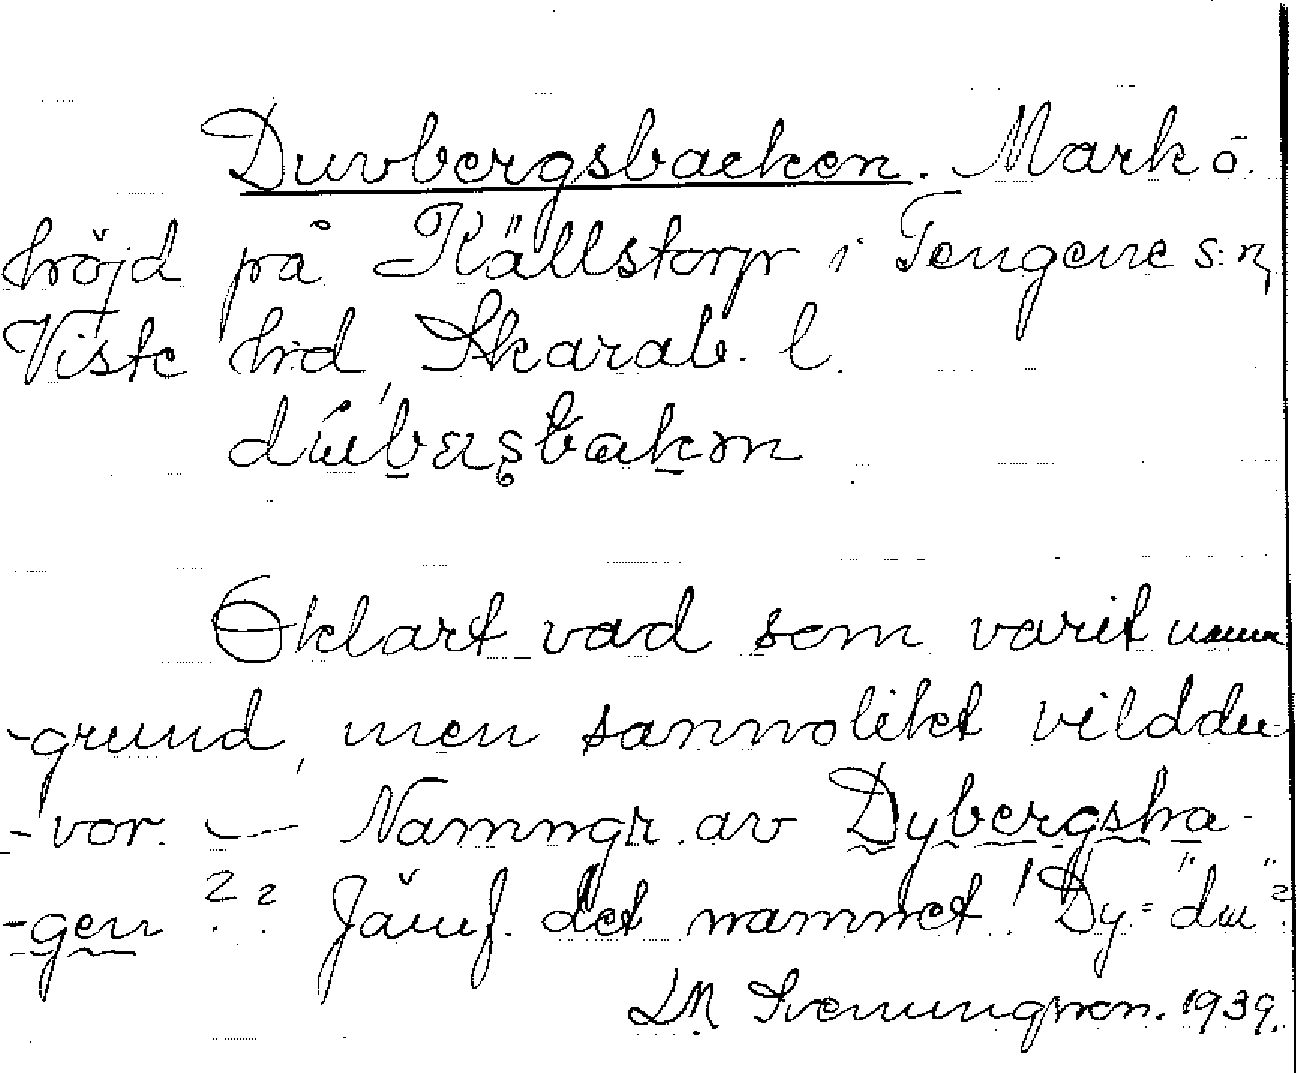 Duvbergsbacken. Mark o.
höjd på Källstorp i Tengene s:n,
Viste hd, Skarab. l.
Oklart vad som varit namn
-grund, men sannolikt vilddu-
-vor. — Namngr. av Dybergsha-
-gen ?? Jämf. det namnet! Dy = "du"?
LM Svenungsson. 1939.